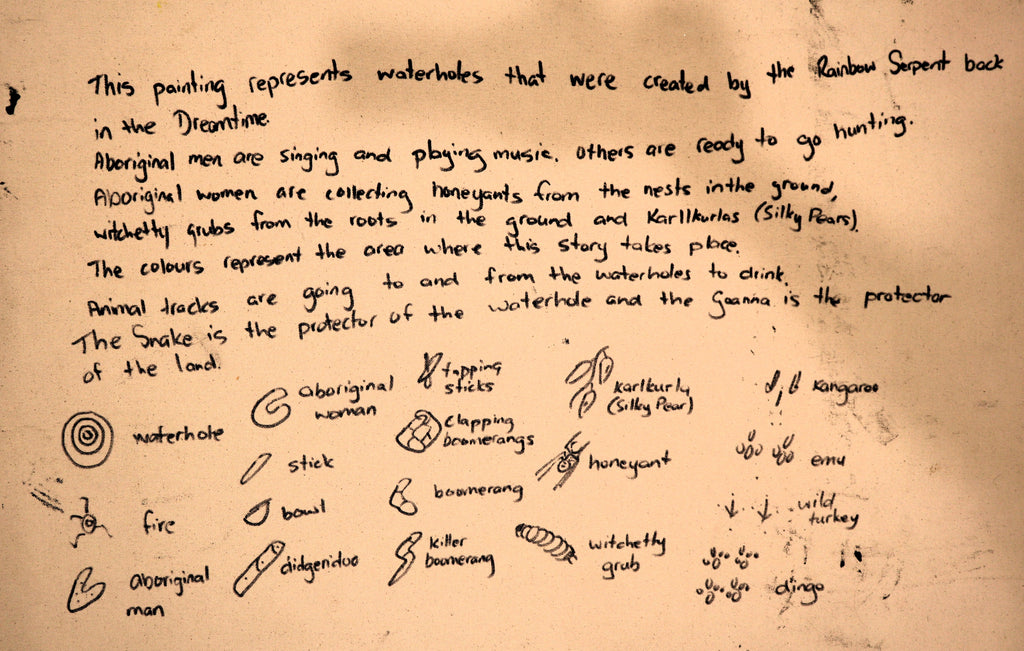 This painting represents waterholes that were created by the Rainbow Serpent back
in the Dreamtime.
Aboriginal men are singing and playing music. others are ready to go hunting.
Aboriginal women are collecting honeyants from the nests in the ground,
witchetty grubs from the roots in the ground and Karllkurlas (Silky Pears).
The colours represent the area where this story takes place.
Animal tracks are going to and from the waterholes to drink.
The Snake is the protector of the waterhole and the Goanna is the protector
of the land.
waterhole
fire
aboriginal
man
aboriginal
woman
stick
bowl
didgeridoo
tapping
sticks
clapping
boomerangs
boomerang
killer
boomerang
Karlkurly
(Silky Pear)
honeyant
witchetty
grub
kangaroo
emu
wild
turkey
dingo